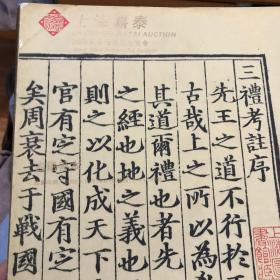 上海嘉泰
AUCTION
三禮考註序
先王之道不行於
古哉上之所以為
其道爾禮也者先
之經也地之義也
則之以化成天下
官有定守國有定
矣周衰去于戰國